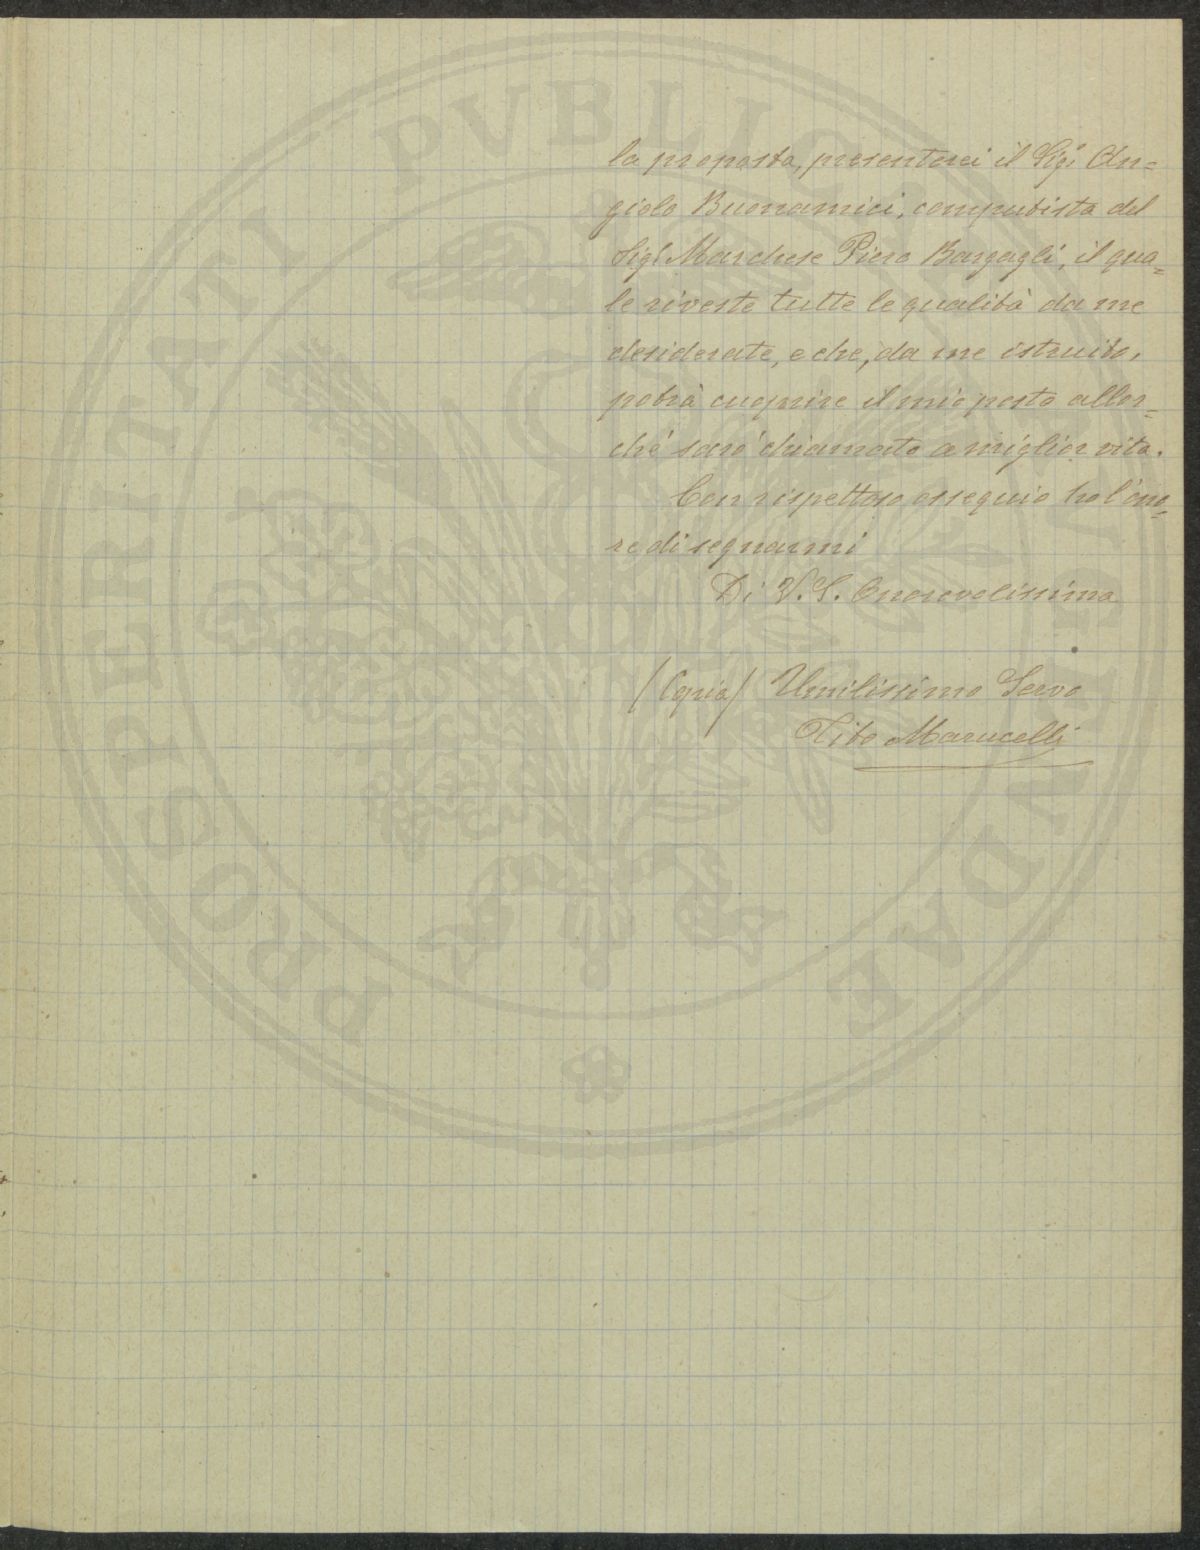 la proposta, presenterei il Sig.r An=
giolo Buonamici, computista del
Sig.r Marchese Piero Bargagli, il qua=
le riveste tutte le qualità da me
desiderate, e che, da me istruito,
potrà cuoprire il mio posto allor=
chè sarò chiamato a miglior vita.
Con rispettoso ossequio ho l'ono=
re di segnarmi
Di V. S. Onorevolissima
(Copia) Umilissimo Servo
Tito Marucelli
PROSPERITATI PVBLICAE AVGENDAE